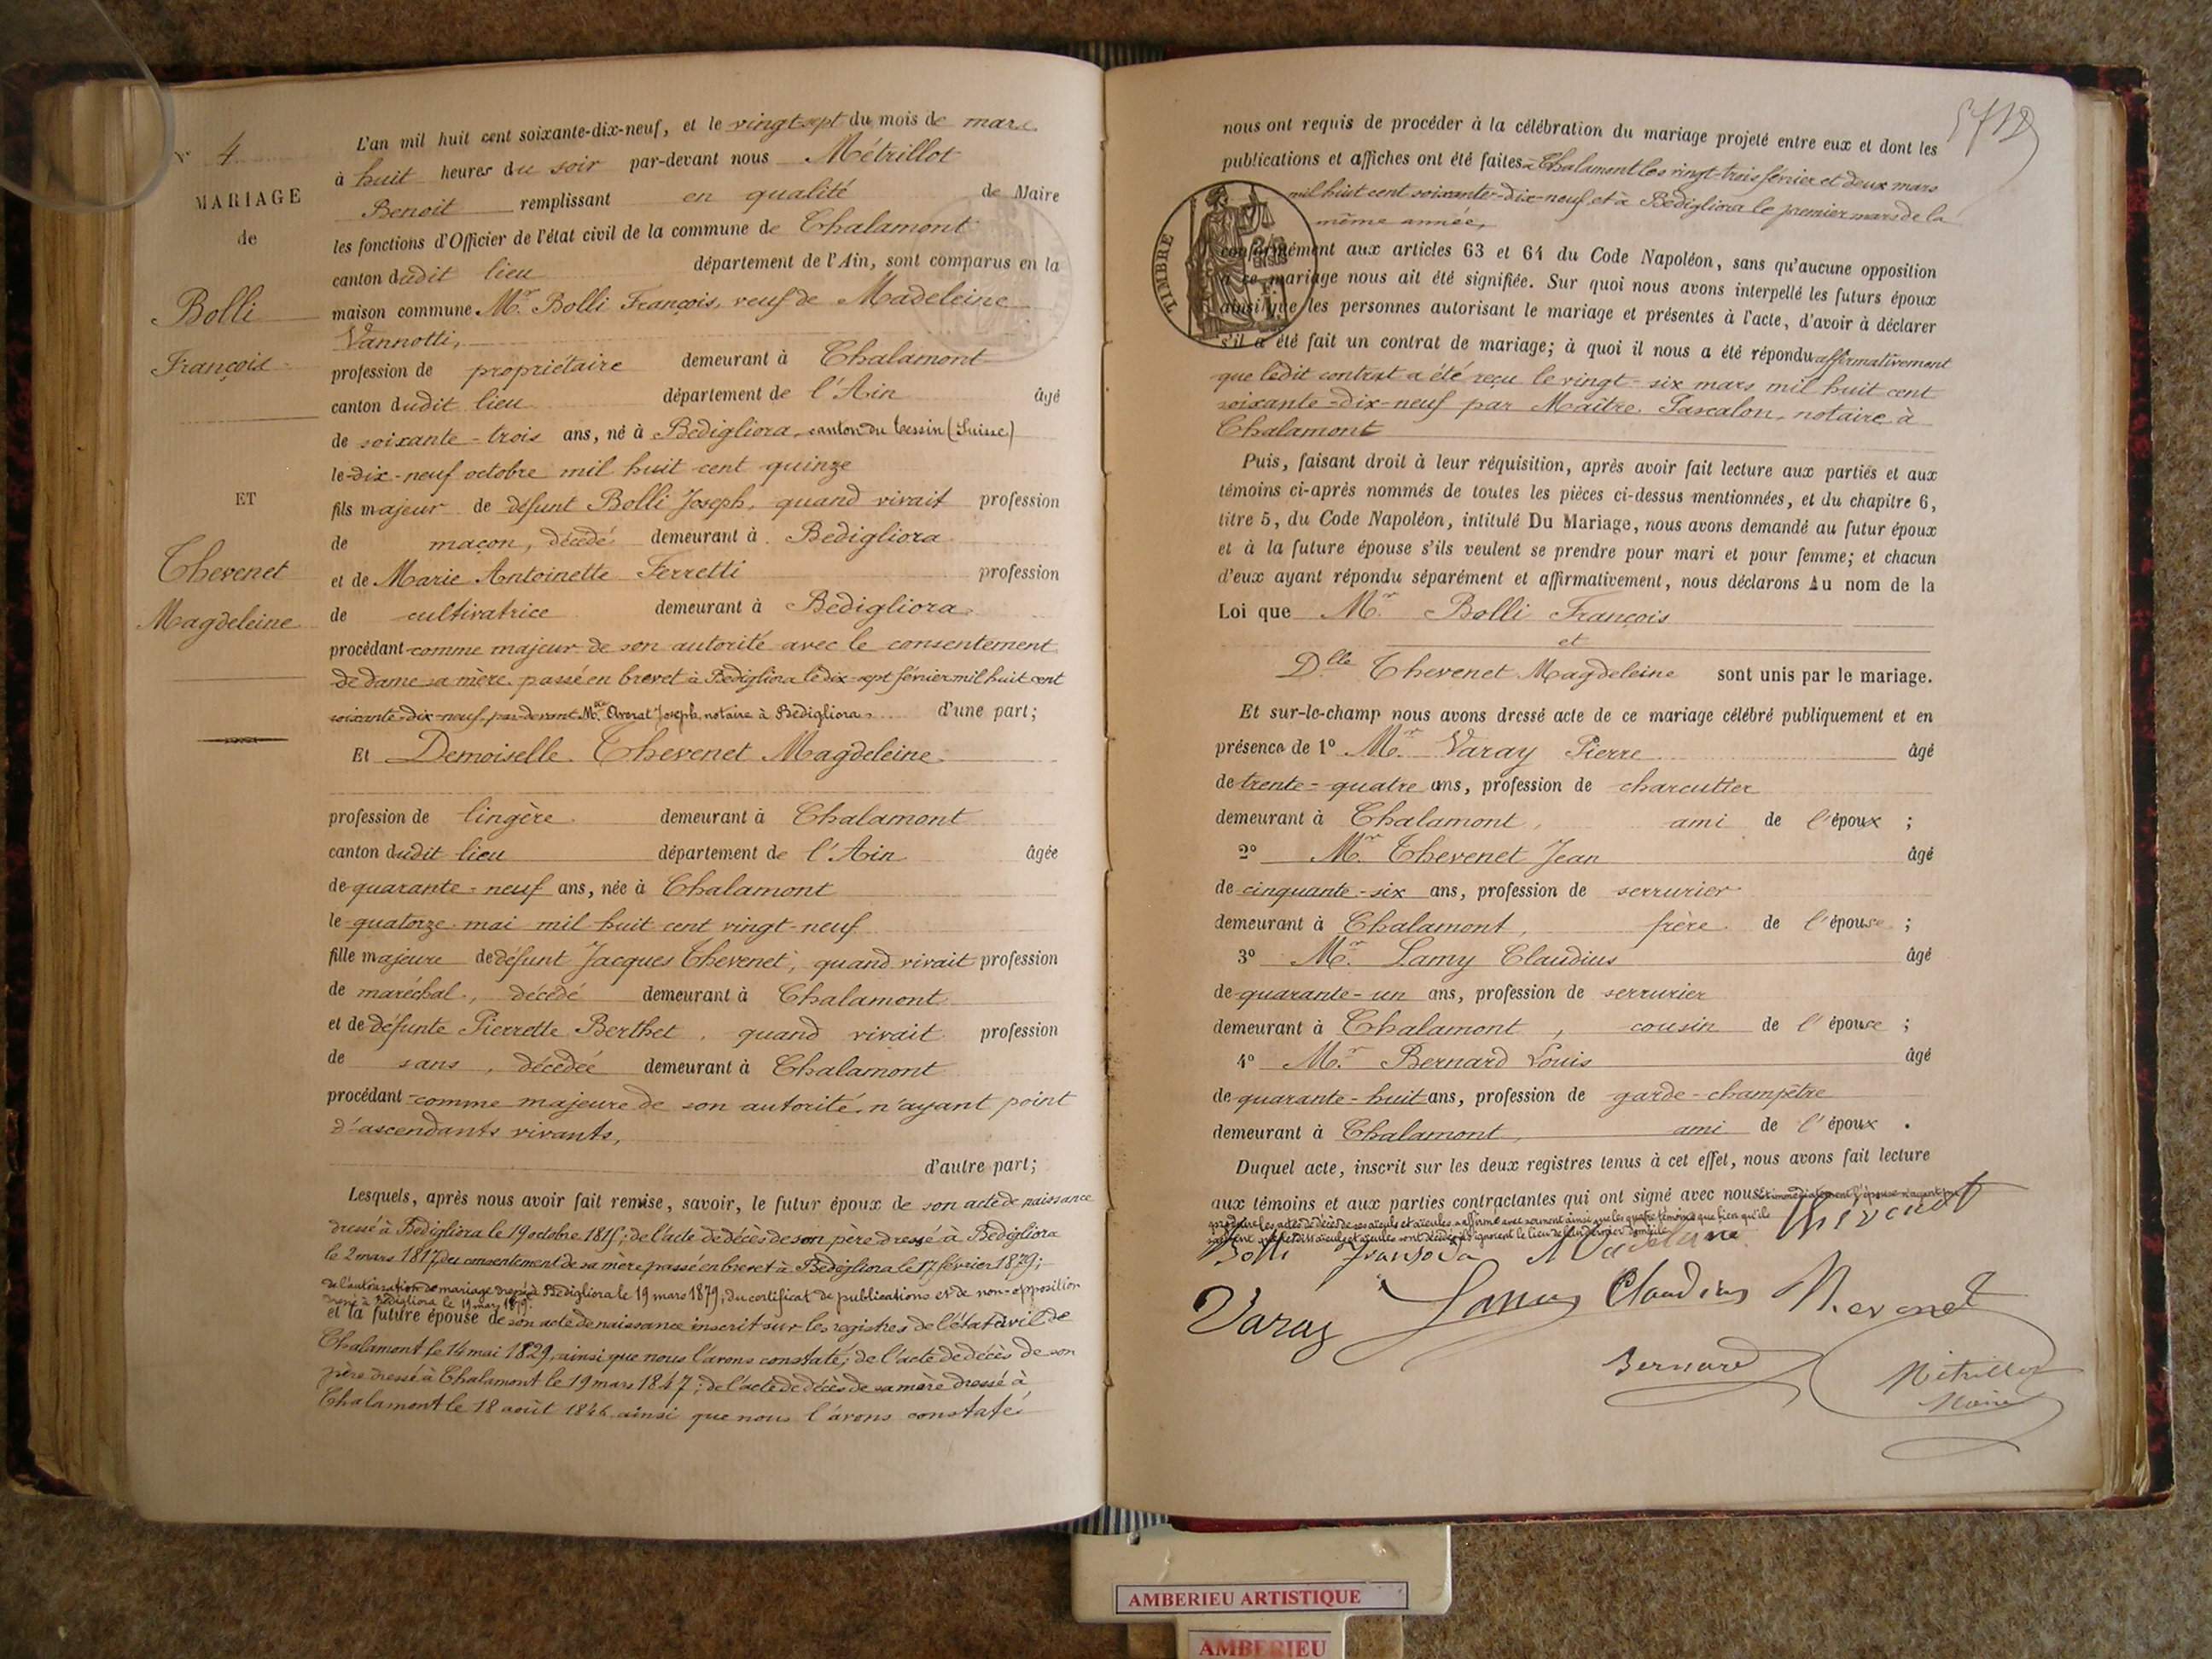 N° 4
MARIAGE
de
Bolli
François
ET
Thevenet
Magdeleine
L'an mil huit cent soixante-dix-neuf, et le vingt sept du mois de mars
à huit heures du soir par-devant nous Métrillot
Benoit remplissant en qualité de Maire
les fonctions d'Officier de l'état civil de la commune de Chalamont
canton dudit lieu département de l'Ain, sont comparus en la
maison commune Mr. Bolli François, veuf de Madeleine
Vannotti,
profession de propriétaire demeurant à Chalamont
canton dudit lieu département de l'Ain âgé
de soixante-trois ans, né à Bedigliora, canton du tessin (Suisse)
le dix-neuf octobre mil huit cent quinze
fils majeur de défunt Bolli Joseph, quand vivait profession
de maçon, décédé demeurant à Bedigliora
et de Marie Antoinette Ferretti profession
de cultivatrice demeurant à Bedigliora,
procédant comme majeur de son autorité avec le consentement
de dame sa mère passé en brevet à Bedigliora le dix-sept février mil huit cent
soixante-dix-neuf par devant Me Joseph notaire à Bedigliora, d'une part;
Et Demoiselle Thevenet Magdeleine
profession de lingère demeurant à Chalamont
canton dudit lieu département de l'Ain âgée
de quarante-neuf ans, née à Chalamont
le quatorze mai mil huit cent vingt-neuf
fille majeure de défunt Jacques Thevenet, quand vivait profession
de maréchal, décédé demeurant à Chalamont
et de défunte Pierrette Berthet, quand vivait profession
de sans, décédée demeurant à Chalamont
procédant comme majeure de son autorité, n'ayant point
d'ascendants vivants,
d'autre part;
Lesquels, après nous avoir fait remise, savoir, le futur époux de son acte de naissance
dressé à Bedigliora le 19 octobre 1815; de l'acte de décès de son père dressé à Bedigliora
le 2 mars 1817, du consentement de sa mère passé en brevet à Bedigliora le 17 février 1879;
de l'autorisation de mariage dressé à Bedigliora le 19 mars 1879; du certificat de publications et de non-opposition
dressé à Bedigliora le 19 mars 1879.
et la future épouse de son acte de naissance inscrit sur les registres de l'état civil de
Chalamont le 14 mai 1829, ainsi que nous l'avons constaté; de l'acte de décès de son
père dressé à Chalamont le 19 mars 1847; de l'acte de décès de sa mère dressé à
Chalamont le 18 août 1846 ainsi que nous l'avons constaté
nous ont requis de procéder à la célébration du mariage projeté entre eux et dont les
publications et affiches ont été faites à Chalamont les vingt-trois février et deux mars
mil huit cent soixante-dix-neuf et à Bedigliora le premier mars de la
même année,
TIMBRE
conformément aux articles 63 et 64 du Code Napoléon, sans qu'aucune opposition
à ce mariage nous ait été signifiée. Sur quoi nous avons interpellé les futurs époux
ainsi que les personnes autorisant le mariage et présentes à l'acte, d'avoir à déclarer
s'il a été fait un contrat de mariage; à quoi il nous a été répondu affirmativement
que ledit contrat a été reçu le vingt-six mars mil huit cent
soixante-dix-neuf par Maître Pascalon, notaire à
Chalamont
Puis, faisant droit à leur réquisition, après avoir fait lecture aux parties et aux
témoins ci-après nommés de toutes les pièces ci-dessus mentionnées, et du chapitre 6,
titre 5, du Code Napoléon, intitulé Du Mariage, nous avons demandé au futur époux
et à la future épouse s'ils veulent se prendre pour mari et pour femme; et chacun
d'eux ayant répondu séparément et affirmativement, nous déclarons Au nom de la
Loi que Mr. Bolli François
et
Dlle Thevenet Magdeleine sont unis par le mariage.
Et sur-le-champ nous avons dressé acte de ce mariage célébré publiquement et en
présence de 1° Mr. Varay Pierre âgé
de trente-quatre ans, profession de charcutier
demeurant à Chalamont, ami de l'époux ;
2° Mr. Thevenet Jean âgé
de cinquante-six ans, profession de serrurier
demeurant à Chalamont, frère de l'épouse ;
3° Mr. Lamy Claudius âgé
de quarante-un ans, profession de serrurier
demeurant à Chalamont, cousin de l'épouse ;
4° Mr. Bernard Louis âgé
de quarante-huit ans, profession de garde-champêtre
demeurant à Chalamont, ami de l'époux .
Duquel acte, inscrit sur les deux registres tenus à cet effet, nous avons fait lecture
aux témoins et aux parties contractantes qui ont signé avec nous
produire les actes de décès de ses aïeuls et aïeules a affirmé avec serment ainsi que les quatre témoins que bien qu'ils
Thévenet
Bolli
Varay Lamy Claudius Thevenet
Bernard Métrillot
Maire
AMBERIEU ARTISTIQUE
AMBERIEU